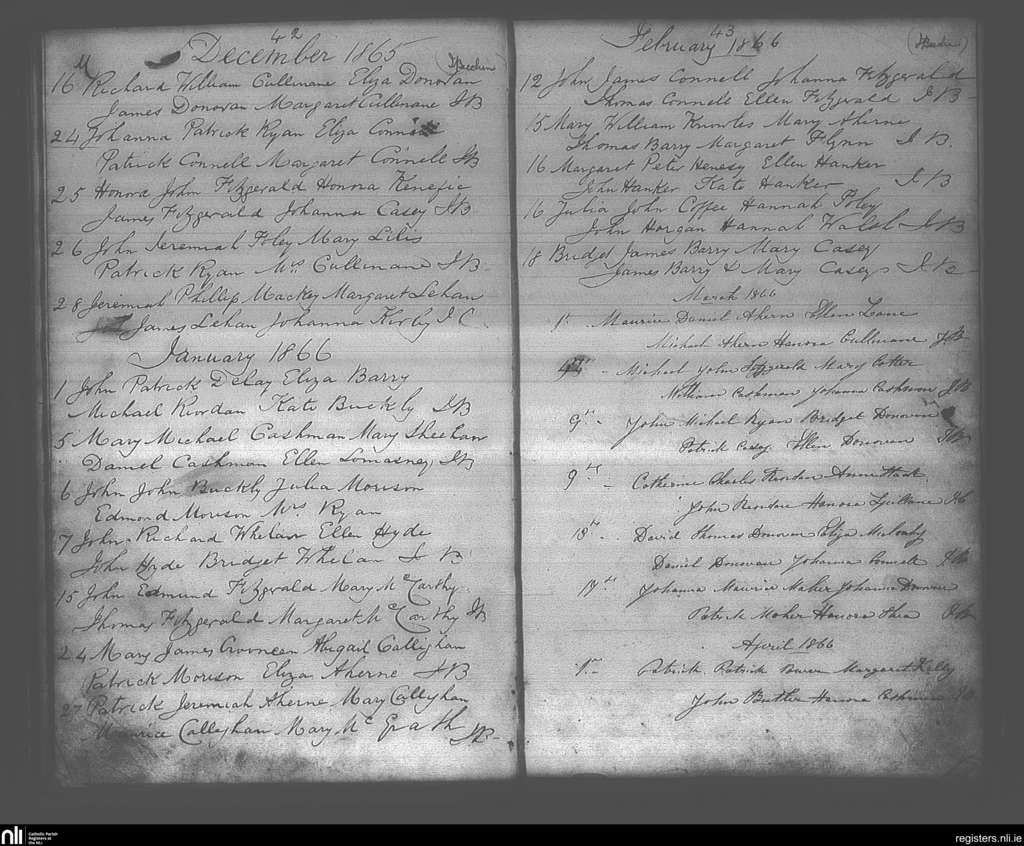 42
December 1865
16 Richard William Cullinane Eliza Donovan
James Donovan Margaret Cullinane IB
24 Johanna Patrick Ryan Eliza Connell
Patrick Connell Margaret Connell IB
25 Honora John Fitzgerald Honora Kenefic
James Fitzgerald Johanna Casey IB
26 John Jeremiah Foley Mary Lilis
Patrick Ryan Mrs Cullinane IB
28 Jeremiah Phillip Mackey Margaret Lehan
James Lehan Johanna Kirby I C
January 1866
1 John Patrick Delay Eliza Barry
Michael Riordan Kate Buckly IB
5 Mary Michael Cashman Mary Sheehan
Daniel Cashman Ellen Lomasney IB
6 John John Buckly Julia Morison
Edmond Morison Mrs Ryan
7 John Richard Whelan Ellen Hyde
John Hyde Bridget Whelan I B
15 John Edmund Fitzgerald Mary McCarthy
Thomas Fitzgerald Margaret McCarthy IB
24 Mary James Crooneen Abigail Callighan
Patrick Morison Eliza Aherne IB
27 Patrick Jeremiah Aherne Mary Callyhan
Maurice Callyhan Mary McGrath IB
43
February 1866
12 John James Connell Johanna Fitzgerald
Thomas Connell Ellen Fitzgerald I B
15 Mary William Knowles Mary Aherne
Thomas Barry Margaret Flynn I B.
16 Margaret Peter Henesy Ellen Hanker
John Hanker Kate Hanker I B
16 Julia John Coffee Hannah Foley
John Horgan Hannah Walsh I B
18 Bridget James Barry Mary Casey
James Barry & Mary Casey I B
March 1866
1st Maurice Daniel Ahern Ellen Leane
Michael Ahern Honora Cullinane IB
Michael John Fitzgerald Mary Cotter
William Cashman Johanna Cashman IB
9th John Michael Ryan Bridget Donovan
Patrick Casey Ellen Donovan IB
9th Catherine Charles Riordan
John Honora
18th David Thomas Donovan Eliza
Daniel Donovan Johanna Connell IB
Johanna Maurice Maher Johanna Donovan
Patrick Maher Honora Shea
April 1866
1st Patrick Patrick Margaret Kelly
John Butler Honora Cashman
nli
Catholic Parish
Registers at
the NLI
registers.nli.ie